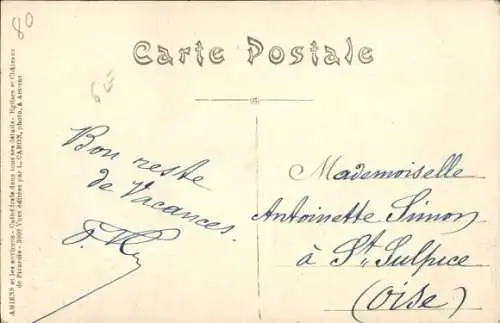 80
Carte Postale
AMIENS et les environs - Cathédrale dans tous ses détails - Eglises et Châteaux
de Picardie - 3000 Vues éditées par L. CARON, photo. à Amiens
Bon reste
de Vacances.
Mademoiselle
Antoinette Simon
à St Sulpice
(Oise)